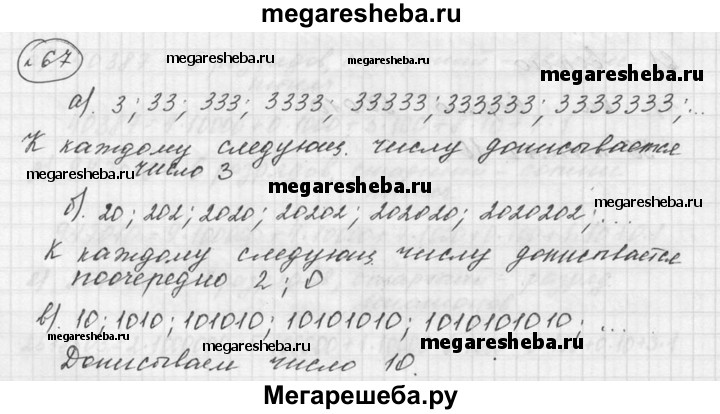 megaresheba.ru
№67
megaresheba.ru
megaresheba.ru
megaresheba.ru
а). 3; 33; 333; 3333; 33333; 333333; 3333333;...
К каждому следующ. числу дописывается
число 3
megaresheba.ru
megaresheba.ru
б). 20; 202; 2020; 20202; 202020; 2020202;...
К каждому следующ. числу дописывается
поочередно 2; 0
в). 10; 1010; 101010; 10101010; 1010101010; ...
megaresheba.ru
megaresheba.ru
Дописываем число 10.
Мегарешеба.ру